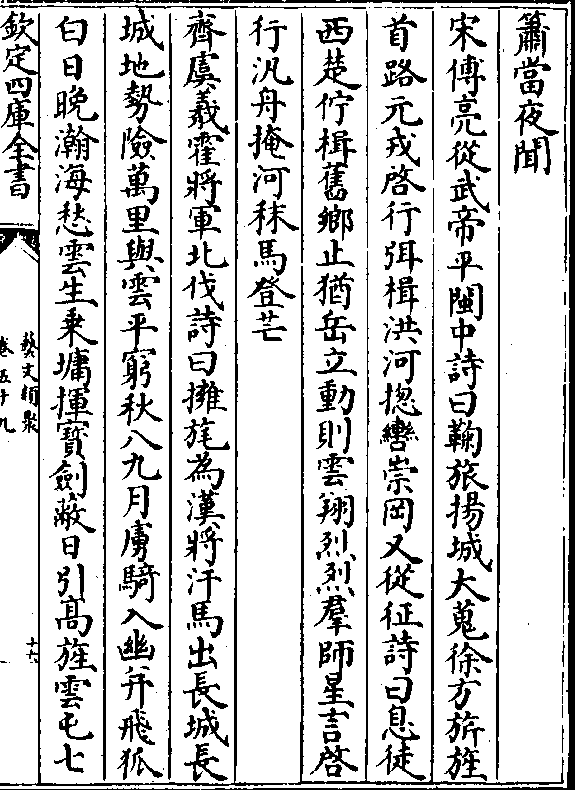 簫當夜聞
宋傅亮從武帝平閩中詩曰鞠旅揚城大蒐徐方旂旌
首路元戎啓行弭楫洪河揔轡崇岡又從征詩曰息徒
西楚佇楫舊鄉止猶岳立動則雲翔烈烈羣師星言啓
行汎舟掩河秣馬登芒
齊虞羲霍將軍北伐詩曰擁旄為漢將汗馬出長城長
城地勢險萬里與雲平窮秋八九月虜騎入幽并飛狐
白日晚瀚海愁雲生乗墉揮寳劍蔽日引髙旌雲屯七
欽定四庫全書
藝文類聚
卷五十九
十六